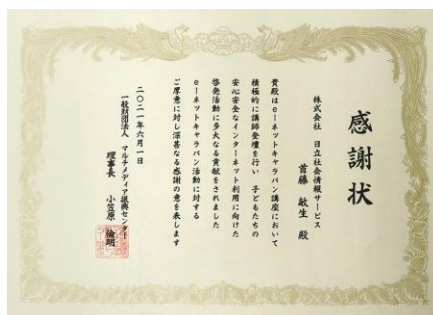 感謝状
株式会社 日立社会情報サービス
首藤 敏生 殿
貴殿はeーネットキャラバン講座において
積極的に講師登壇を行い 子どもたちの
安心安全なインターネット利用に向けた
啓発活動に多大なる貢献をされました
eーネットキャラバン活動に対する
ご厚意に対し深甚なる感謝の意を表します
二〇二一年六月一日
一般財団法人 マルチメディア振興センター
理事長 小笠原 倫明